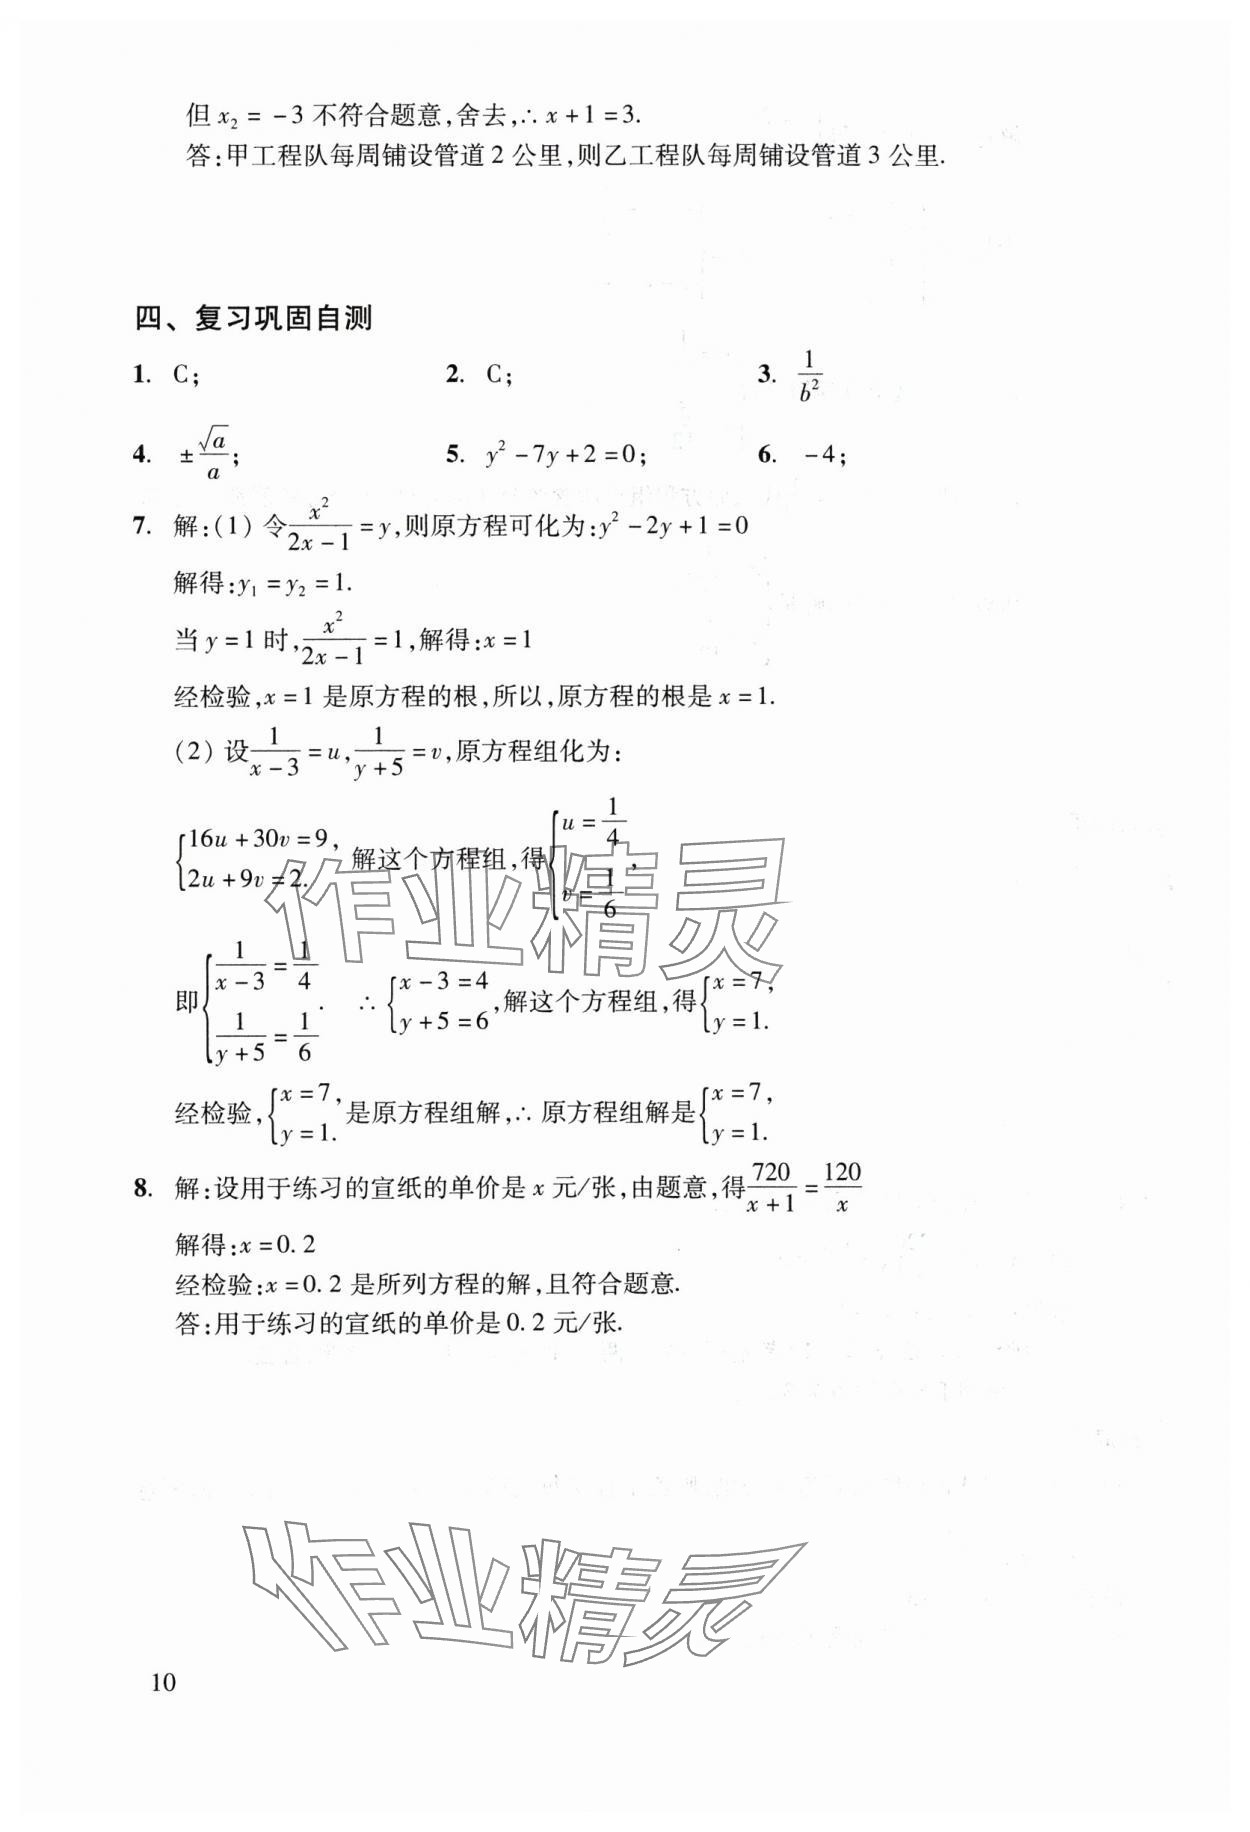 但 x₂ = -3 不符合题意,舍去,∴ x+1=3.
答:甲工程队每周铺设管道 2 公里,则乙工程队每周铺设管道 3 公里.
四、复习巩固自测
1. C; 2. C; 3. 1/b²
4. ±√a/a; 5. y²-7y+2=0; 6. -4;
7. 解:(1) 令 x²/(2x-1) = y,则原方程可化为:y²-2y+1=0
解得:y₁=y₂=1.
当 y=1 时, x²/(2x-1) =1,解得:x=1
经检验,x=1 是原方程的根,所以,原方程的根是 x=1.
(2) 设 1/(x-3) = u, 1/(y+5) = v,原方程组化为:
{16u+30v=9, 2u+9v=2. 解这个方程组,得 {u=1/4 v=1/6,
即 {1/(x-3)=1/4 1/(y+5)=1/6. ∴ {x-3=4 y+5=6,解这个方程组,得 {x=7, y=1.
经检验, {x=7, y=1. 是原方程组解,∴ 原方程组解是 {x=7, y=1.
8. 解:设用于练习的宣纸的单价是 x 元/张,由题意,得 720/(x+1) = 120/x
解得:x=0.2
经检验:x=0.2 是所列方程的解,且符合题意.
答:用于练习的宣纸的单价是 0.2 元/张.
作业精灵
作业精灵
10